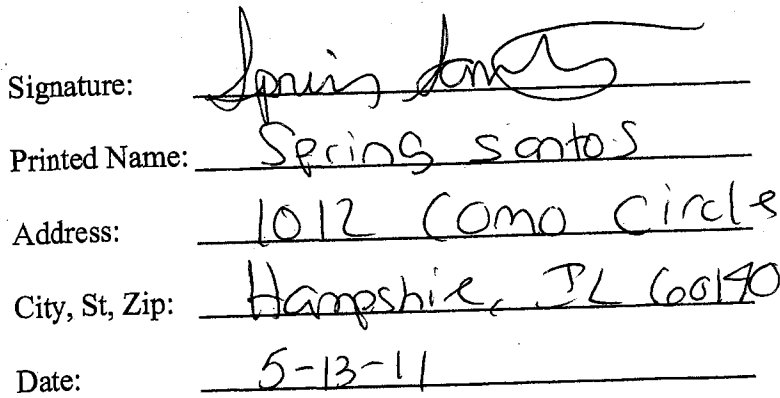 Signature: Spring Santos
Printed Name: Spring Santos
Address: 1012 Como Circle
City, St, Zip: Hampshire, IL 60140
Date: 5-13-11